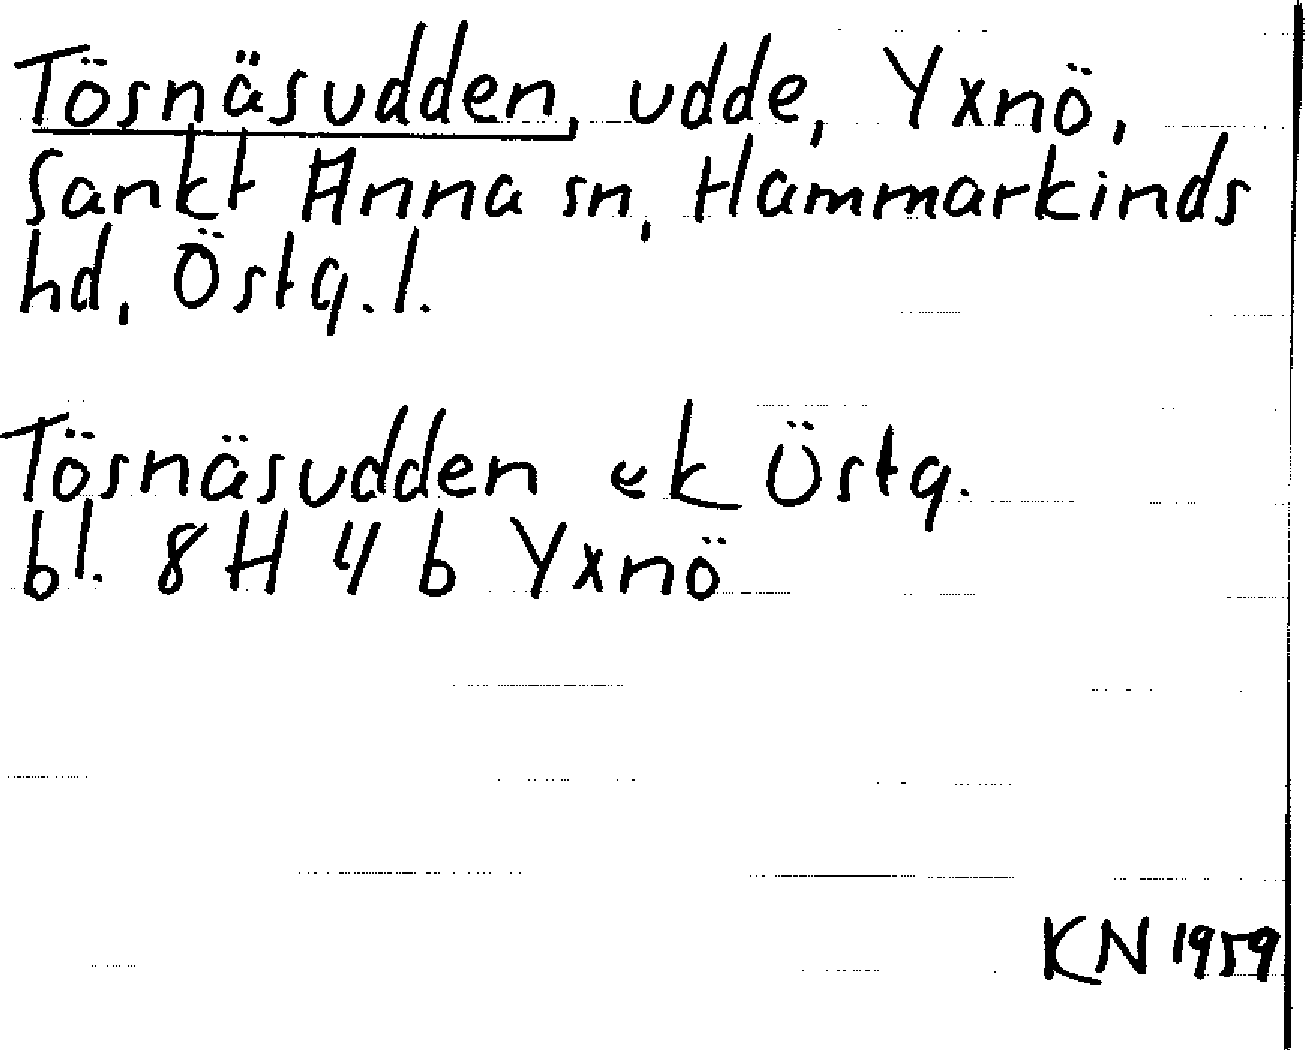 Tösnäsudden, udde, Yxnö,
Sankt Anna sn, Hammarkinds
hd, Östg.l.
Tösnäsudden ek Östg.
bl. 8H 4 b Yxnö
KN 1959